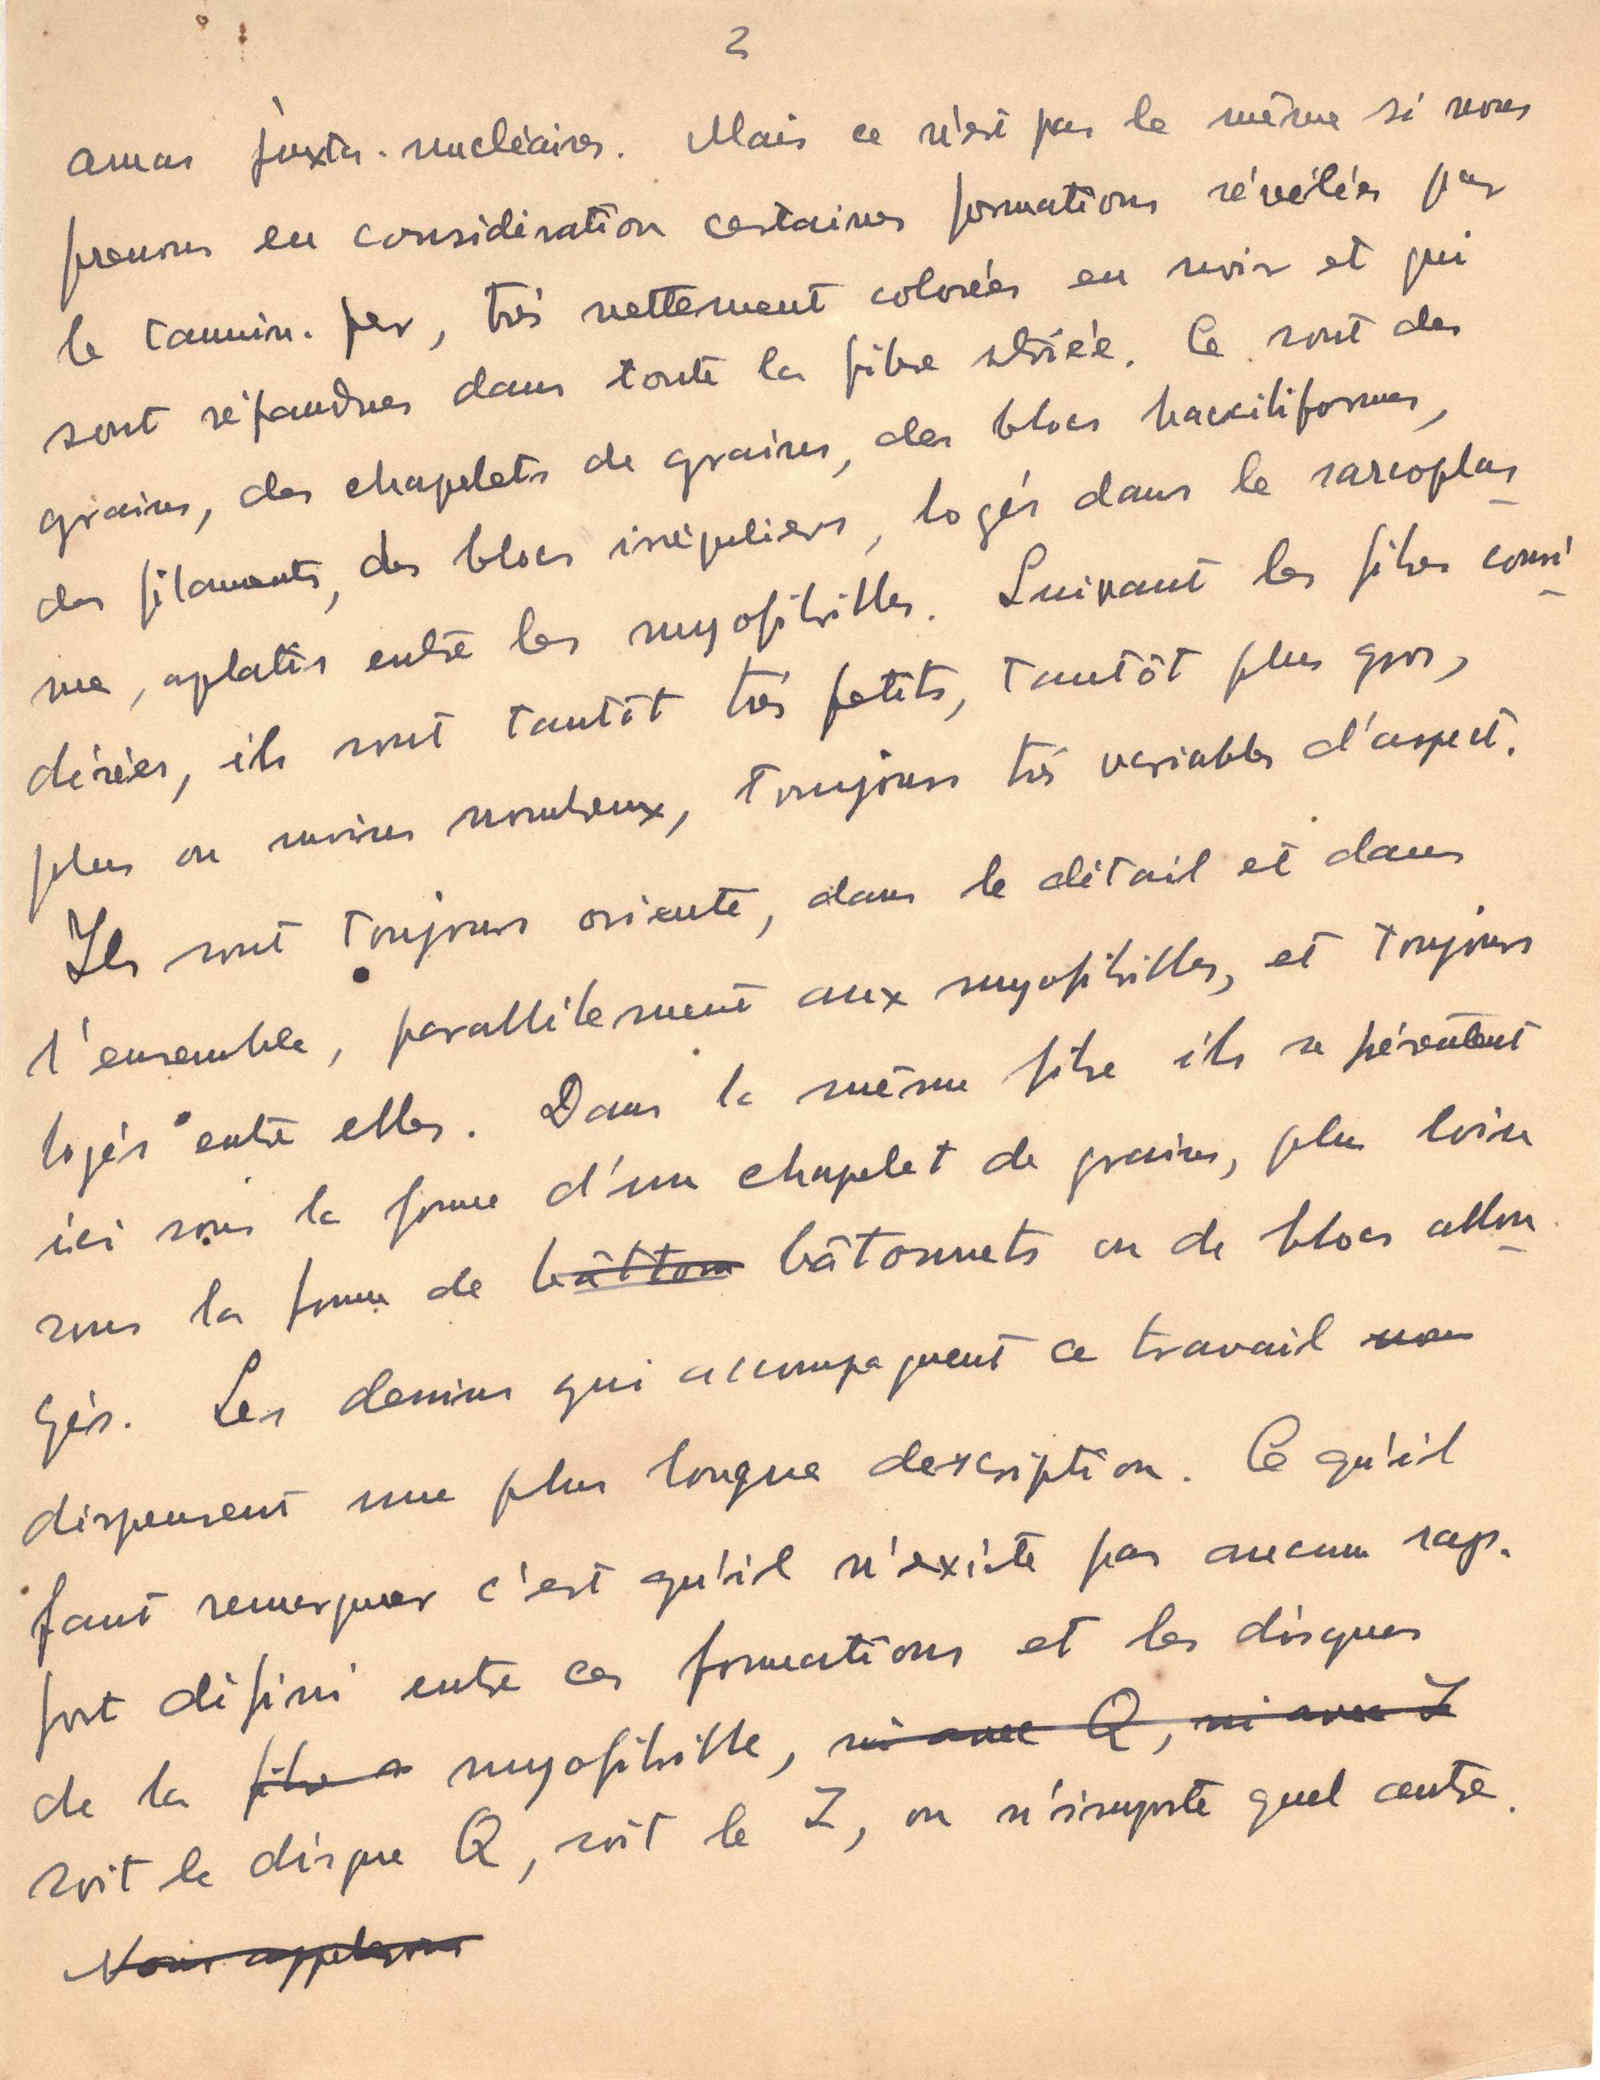 2
amas juxta-nucléaires. Mais ce n'est pas le même si nous
prenons en considération certaines formations révélées par
le tannin-fer, très nettement colorées en noir et qui
sont répandues dans toute la fibre striée. Ce sont des
grains, des chapelets de grains, des blocs bacciliformes,
des filaments, des blocs irréguliers, logés dans le sarcoplas
me, aplatis entre les myofibrilles. Suivant les fibres consi
dérées, ils sont tantôt très petits, tantôt plus gros,
plus ou moins nombreux, toujours très variables d'aspect.
Ils sont toujours orienté, dans le détail et dans
l'ensemble, parallèlement aux myofibrilles, et toujours
logés entre elles. Dans la même fibre ils se présentent
ici sous la forme d'un chapelet de grains, plus loin
sous la forme de bâttom bâtonnets ou de blocs allon
gés. Les dessins qui accompagnent ce travail nous
dispensent une plus longue description. Ce qu'il
faut remarquer c'est qu'il n'existe pas aucun rap-
port défini entre ces formations et les disques
de la fibre myofibrille, ni avec Q, ni avec Z
soit le disque Q, soit le Z, ou n'importe quel autre.
Nous appelerons